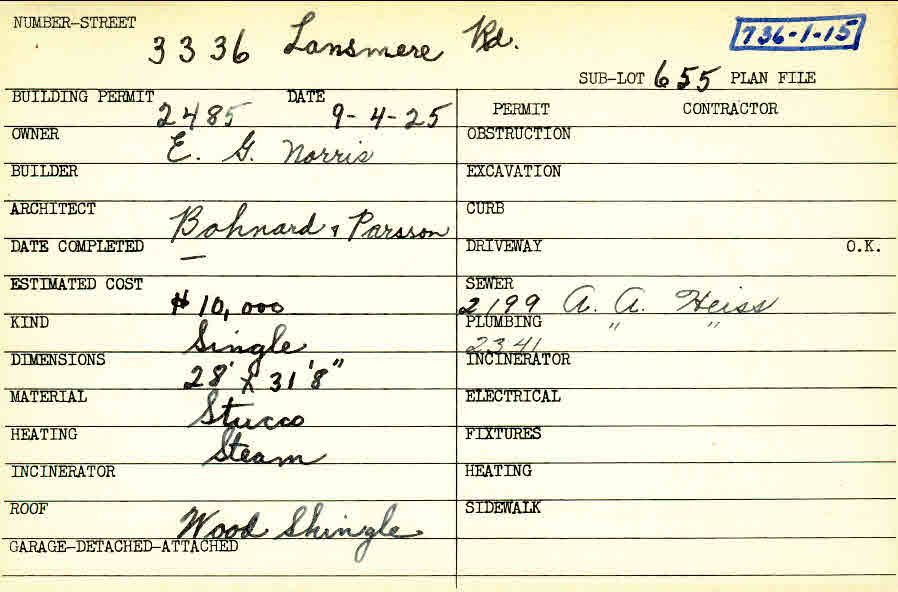 NUMBER-STREET 3336 Lansmere Rd. 736-1-15
SUB-LOT 655 PLAN FILE
BUILDING PERMIT 2485 DATE 9-4-25
PERMIT CONTRACTOR
OWNER E. G. Norris
OBSTRUCTION
BUILDER
EXCAVATION
ARCHITECT Bohnard & Parsson
CURB
DATE COMPLETED —
DRIVEWAY O.K.
ESTIMATED COST $10,000
SEWER 2199 A. A. Heiss
KIND Single
PLUMBING 2341 " "
DIMENSIONS 28' x 31'8"
INCINERATOR
MATERIAL Stucco
ELECTRICAL
HEATING Steam
FIXTURES
INCINERATOR
HEATING
ROOF Wood Shingle
SIDEWALK
GARAGE-DETACHED-ATTACHED